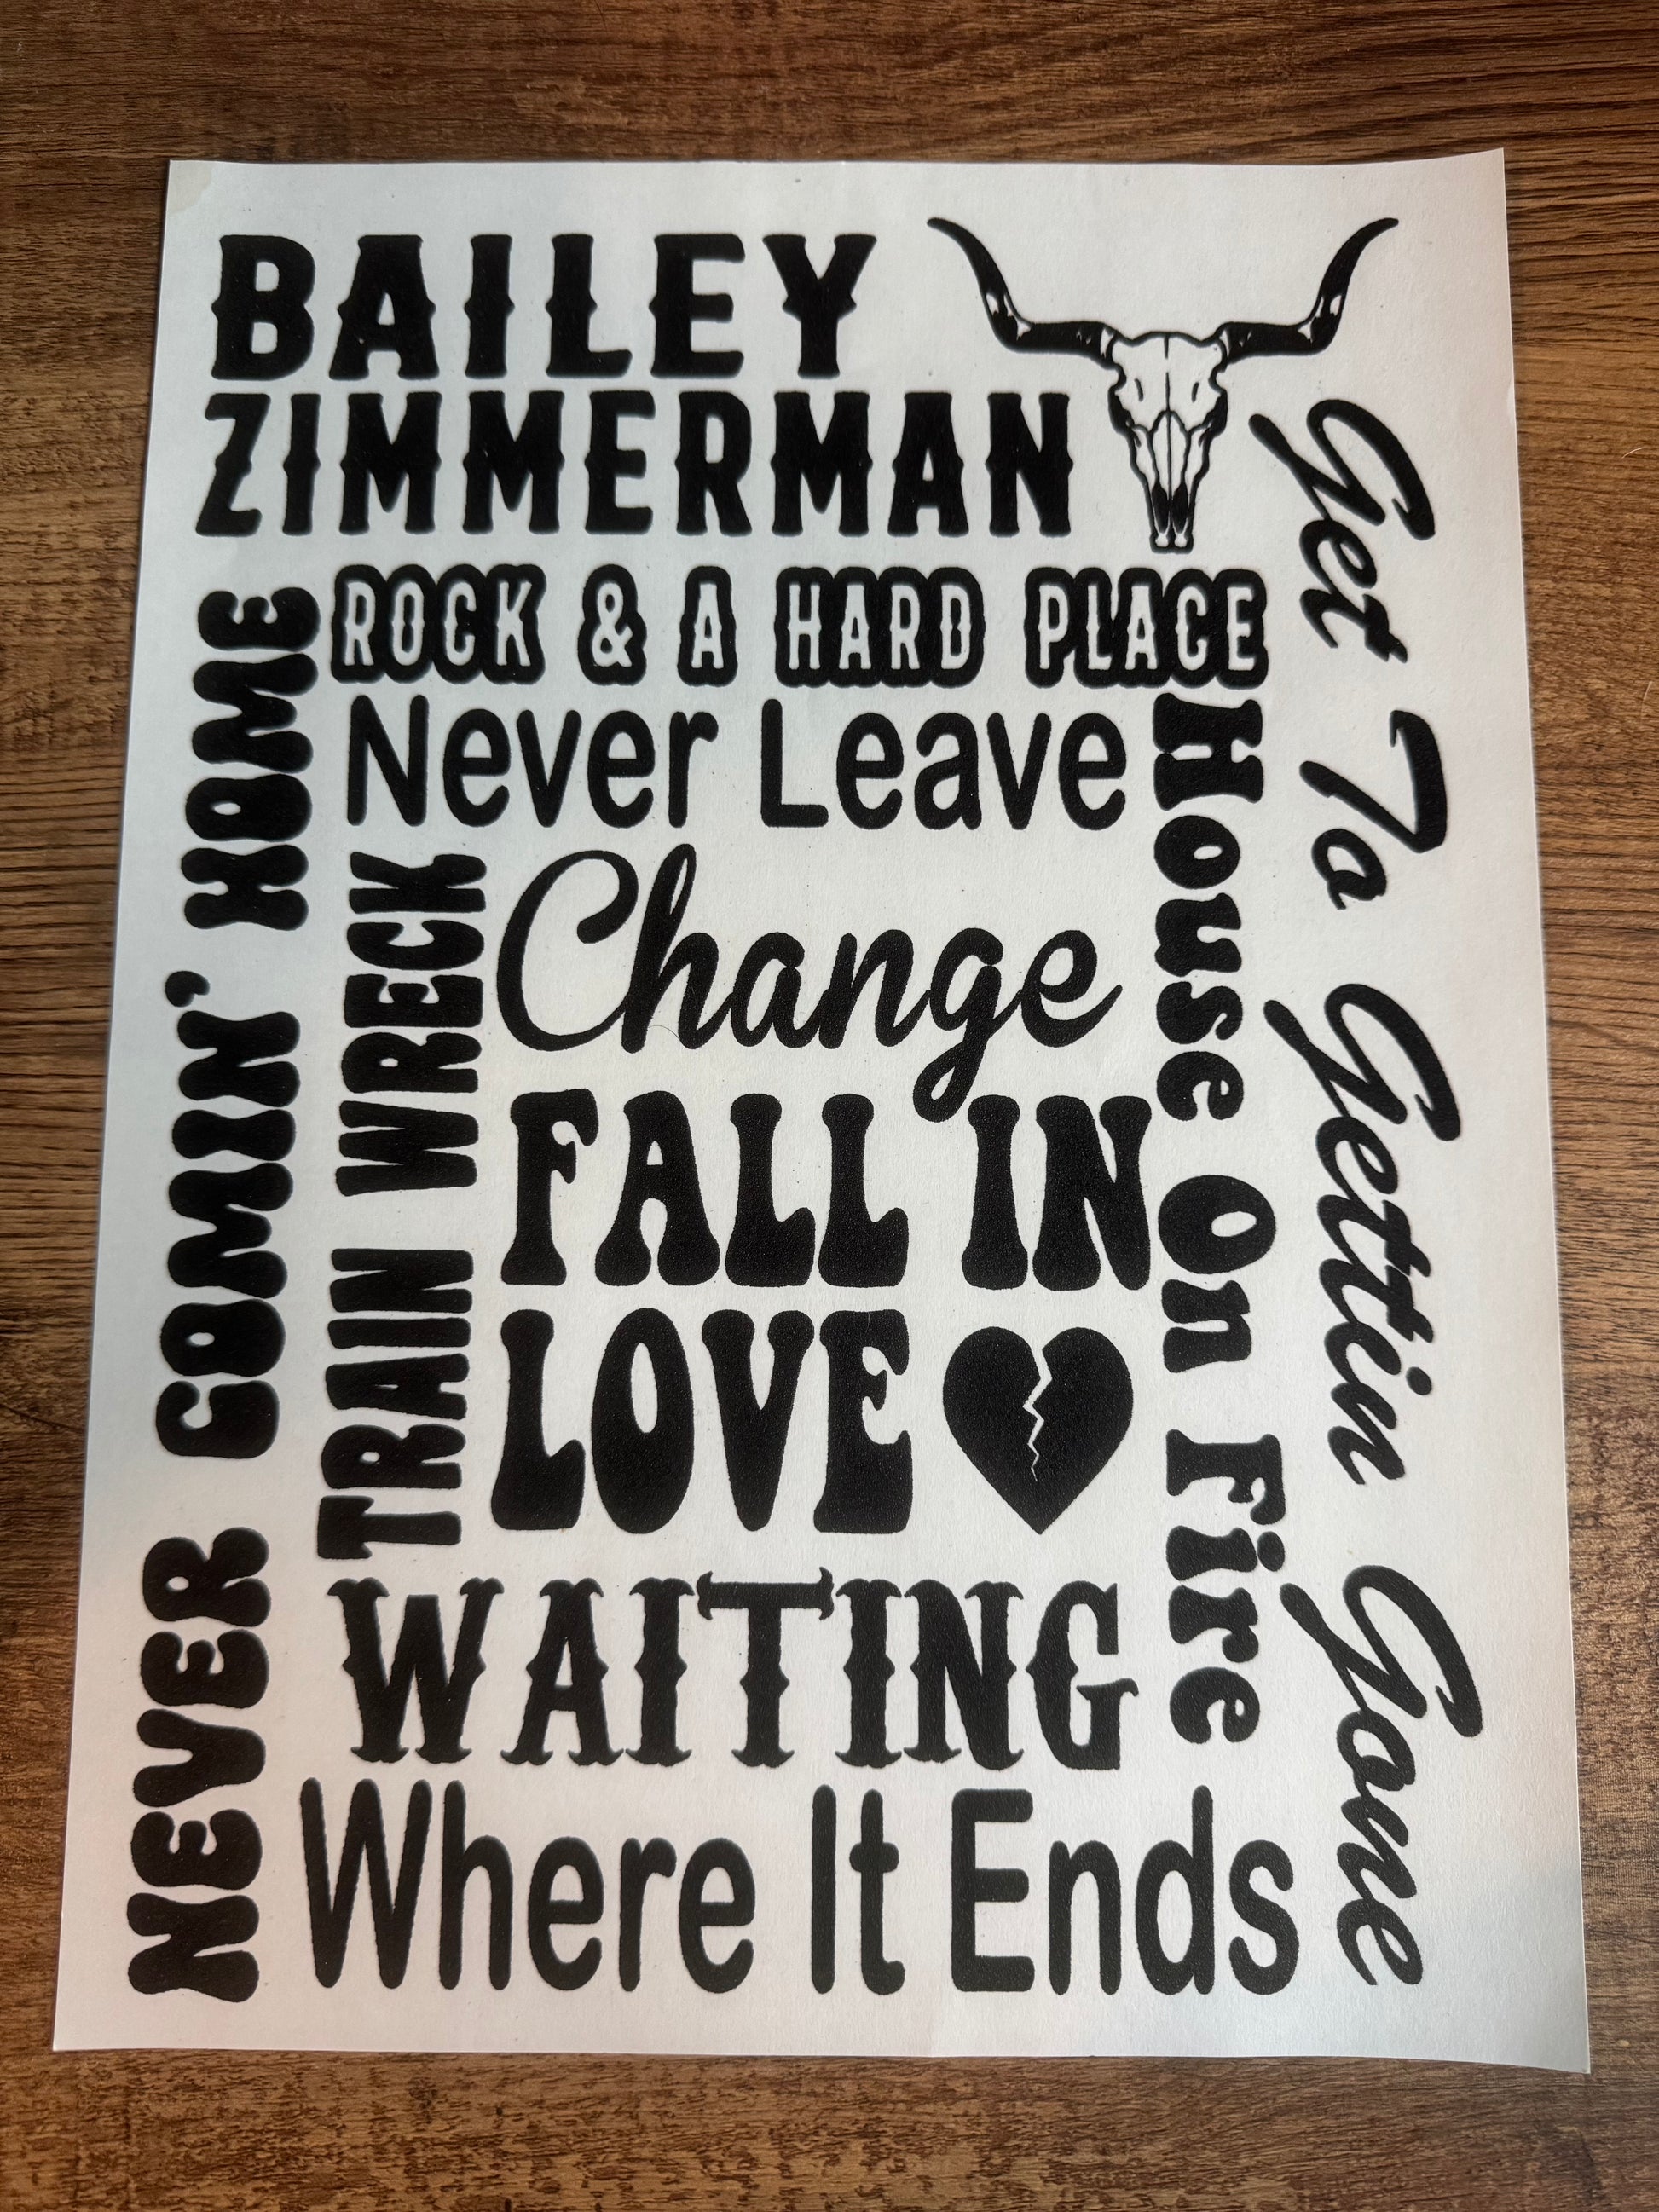 BAILEY
ZIMMERMAN
ROCK & A HARD PLACE
Never Leave
Change
FALL IN
LOVE
WAITING
Where It Ends
NEVER COMIN' HOME
TRAIN WRECK
House On Fire
Get To Gettin Gone